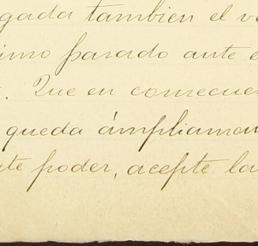 gada tambien el v
imo pasado ante e
. Que en consecue
queda ámpliamen
te poder, acepte la